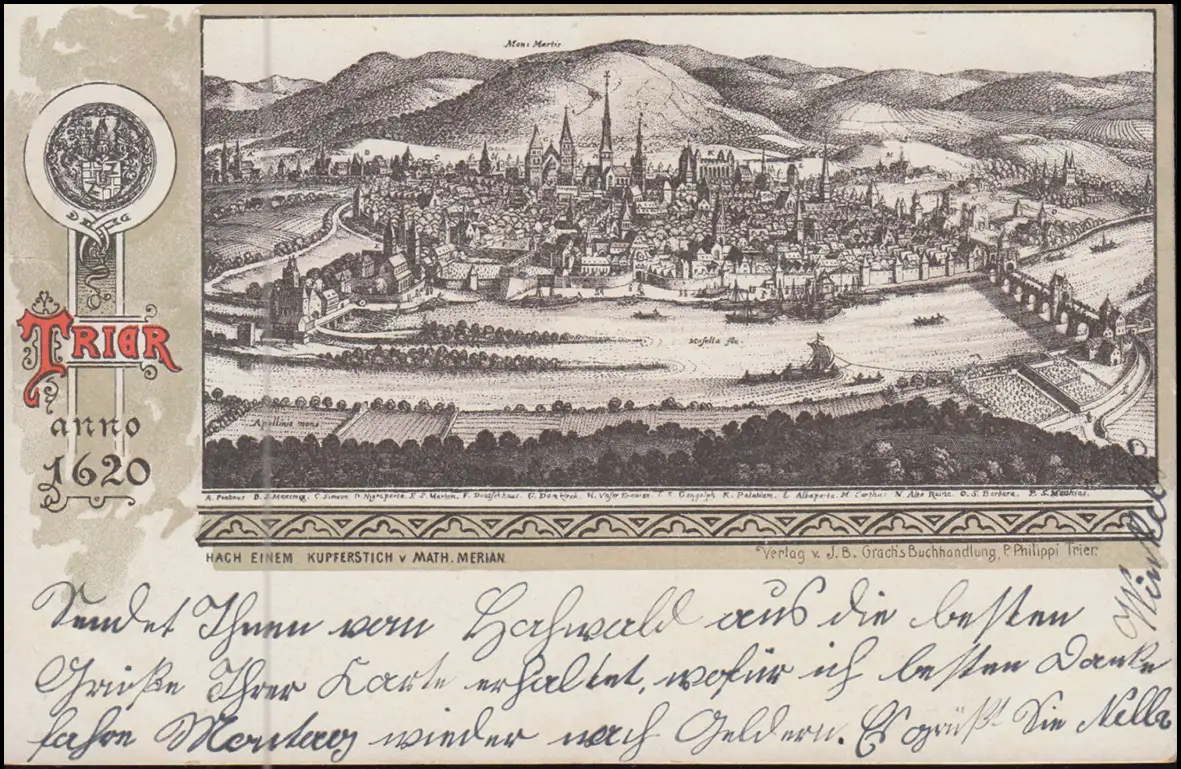 Mons Martis
TRIER
anno
1620
Mosella flu.
Apollinis mons
A. Paulinus B. S. Maximin. C. Simeon D. Nigraporta. E. S. Marten. F. Deutschhaus. G. Domkirch. H. Unser Frawen I. S. Gangolph K. Palatium. L. Albaporta. M. Carthus N. Alte Ruinæ. O. S. Barbara. P. S. Matthias.
NACH EINEM KUPFERSTICH v MATH. MERIAN
Verlag v. J. B. Grach's Buchhandlung, P. Philippi Trier.
Sendet Ihnen vom Hochwald aus die besten
Grüße Ihrer Karte erhaltet, wofür ich besten Danke
fahre Montag wieder nach Geldern. Es grüßt Sie Nella